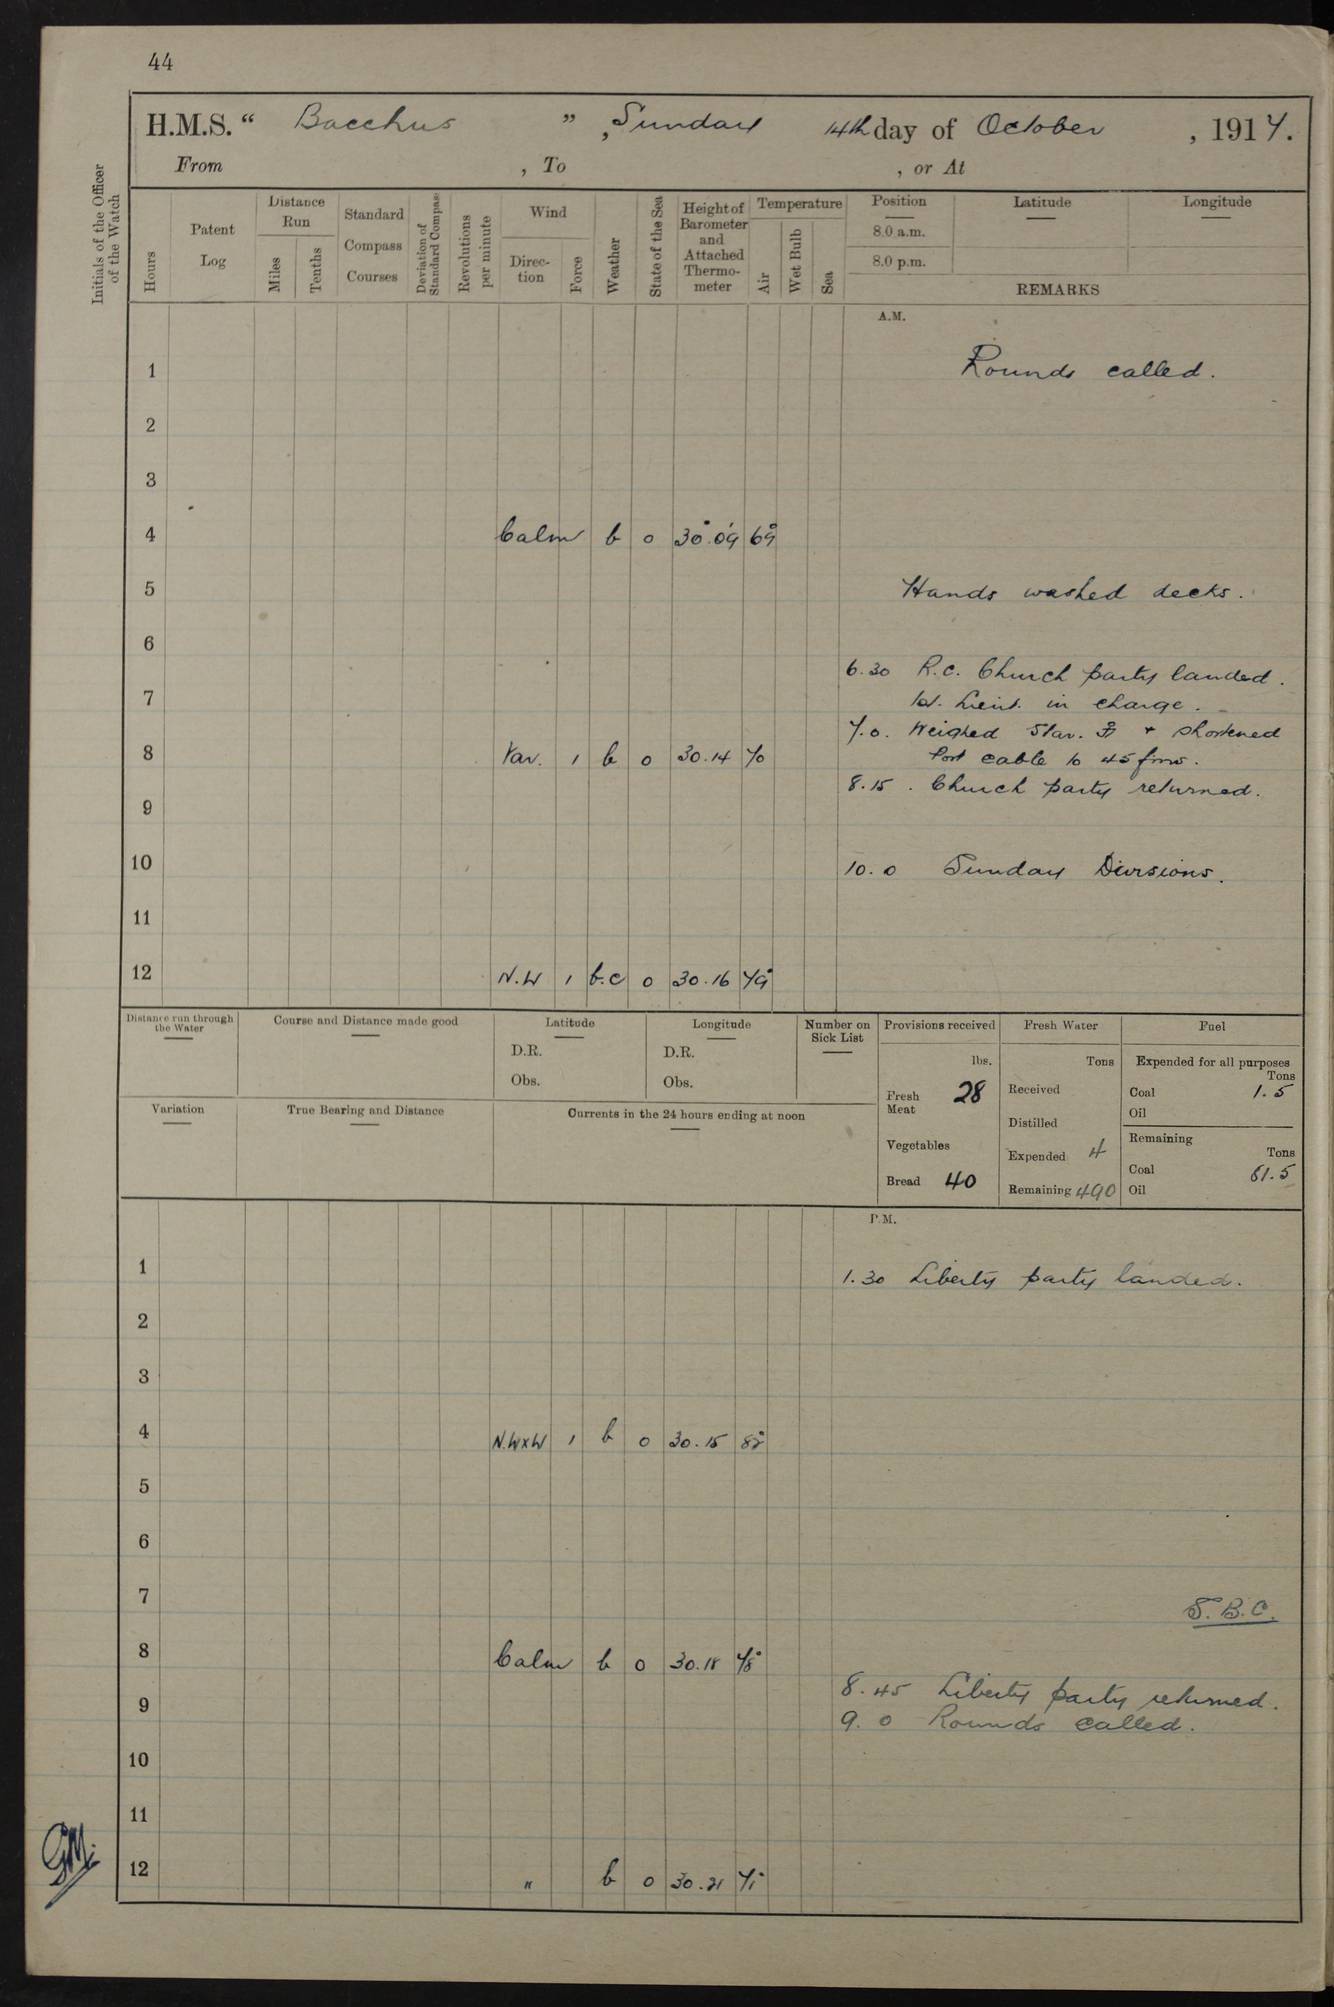 44
H.M.S. “ Bacchus ” , Sunday 14th day of October , 1917.
From , To , or At
Initials of the Officer of the Watch
Hours
Patent Log
Distance Run
Miles
Tenths
Standard Compass Courses
Deviation of Standard Compass
Revolutions per minute
Wind
Direc-tion
Force
Weather
State of the Sea
Height of Barometer and Attached Thermo-meter
Temperature
Air
Wet Bulb
Sea
Position
8.0 a.m.
8.0 p.m.
Latitude
Longitude
REMARKS
A.M.
1 Rounds called.
2
3
4 Calm b 0 30.09 69°
5 Hands washed decks.
6
6.30 R.C. Church party landed.
7 1st. Lieut. in charge.
7.0. Weighed Star. ⚓ + shortened
8 Var. 1 b 0 30.14 70 Port cable to 45 fms.
8.15. Church party returned.
9
10 10.0 Sunday Divisions.
11
12 N.W 1 b.c 0 30.16 79°
Distance run through the Water
Course and Distance made good
Latitude
D.R.
Obs.
Longitude
D.R.
Obs.
Number on Sick List
Provisions received
lbs.
Fresh Meat 28
Vegetables
Bread 40
Fresh Water
Tons
Received
Distilled
Expended 4
Remaining 490
Fuel
Expended for all purposes
Tons
Coal 1.5
Oil
Remaining
Tons
Coal 61.5
Oil
Variation
True Bearing and Distance
Currents in the 24 hours ending at noon
P.M.
1 1.30 Liberty party landed.
2
3
4 N.WxW 1 b 0 30.15 82°
5
6
7 S.B.C.
8 Calm b 0 30.18 78°
8.45 Liberty party returned.
9 9.0 Rounds called.
10
11
12 " b 0 30.21 71°
GM.